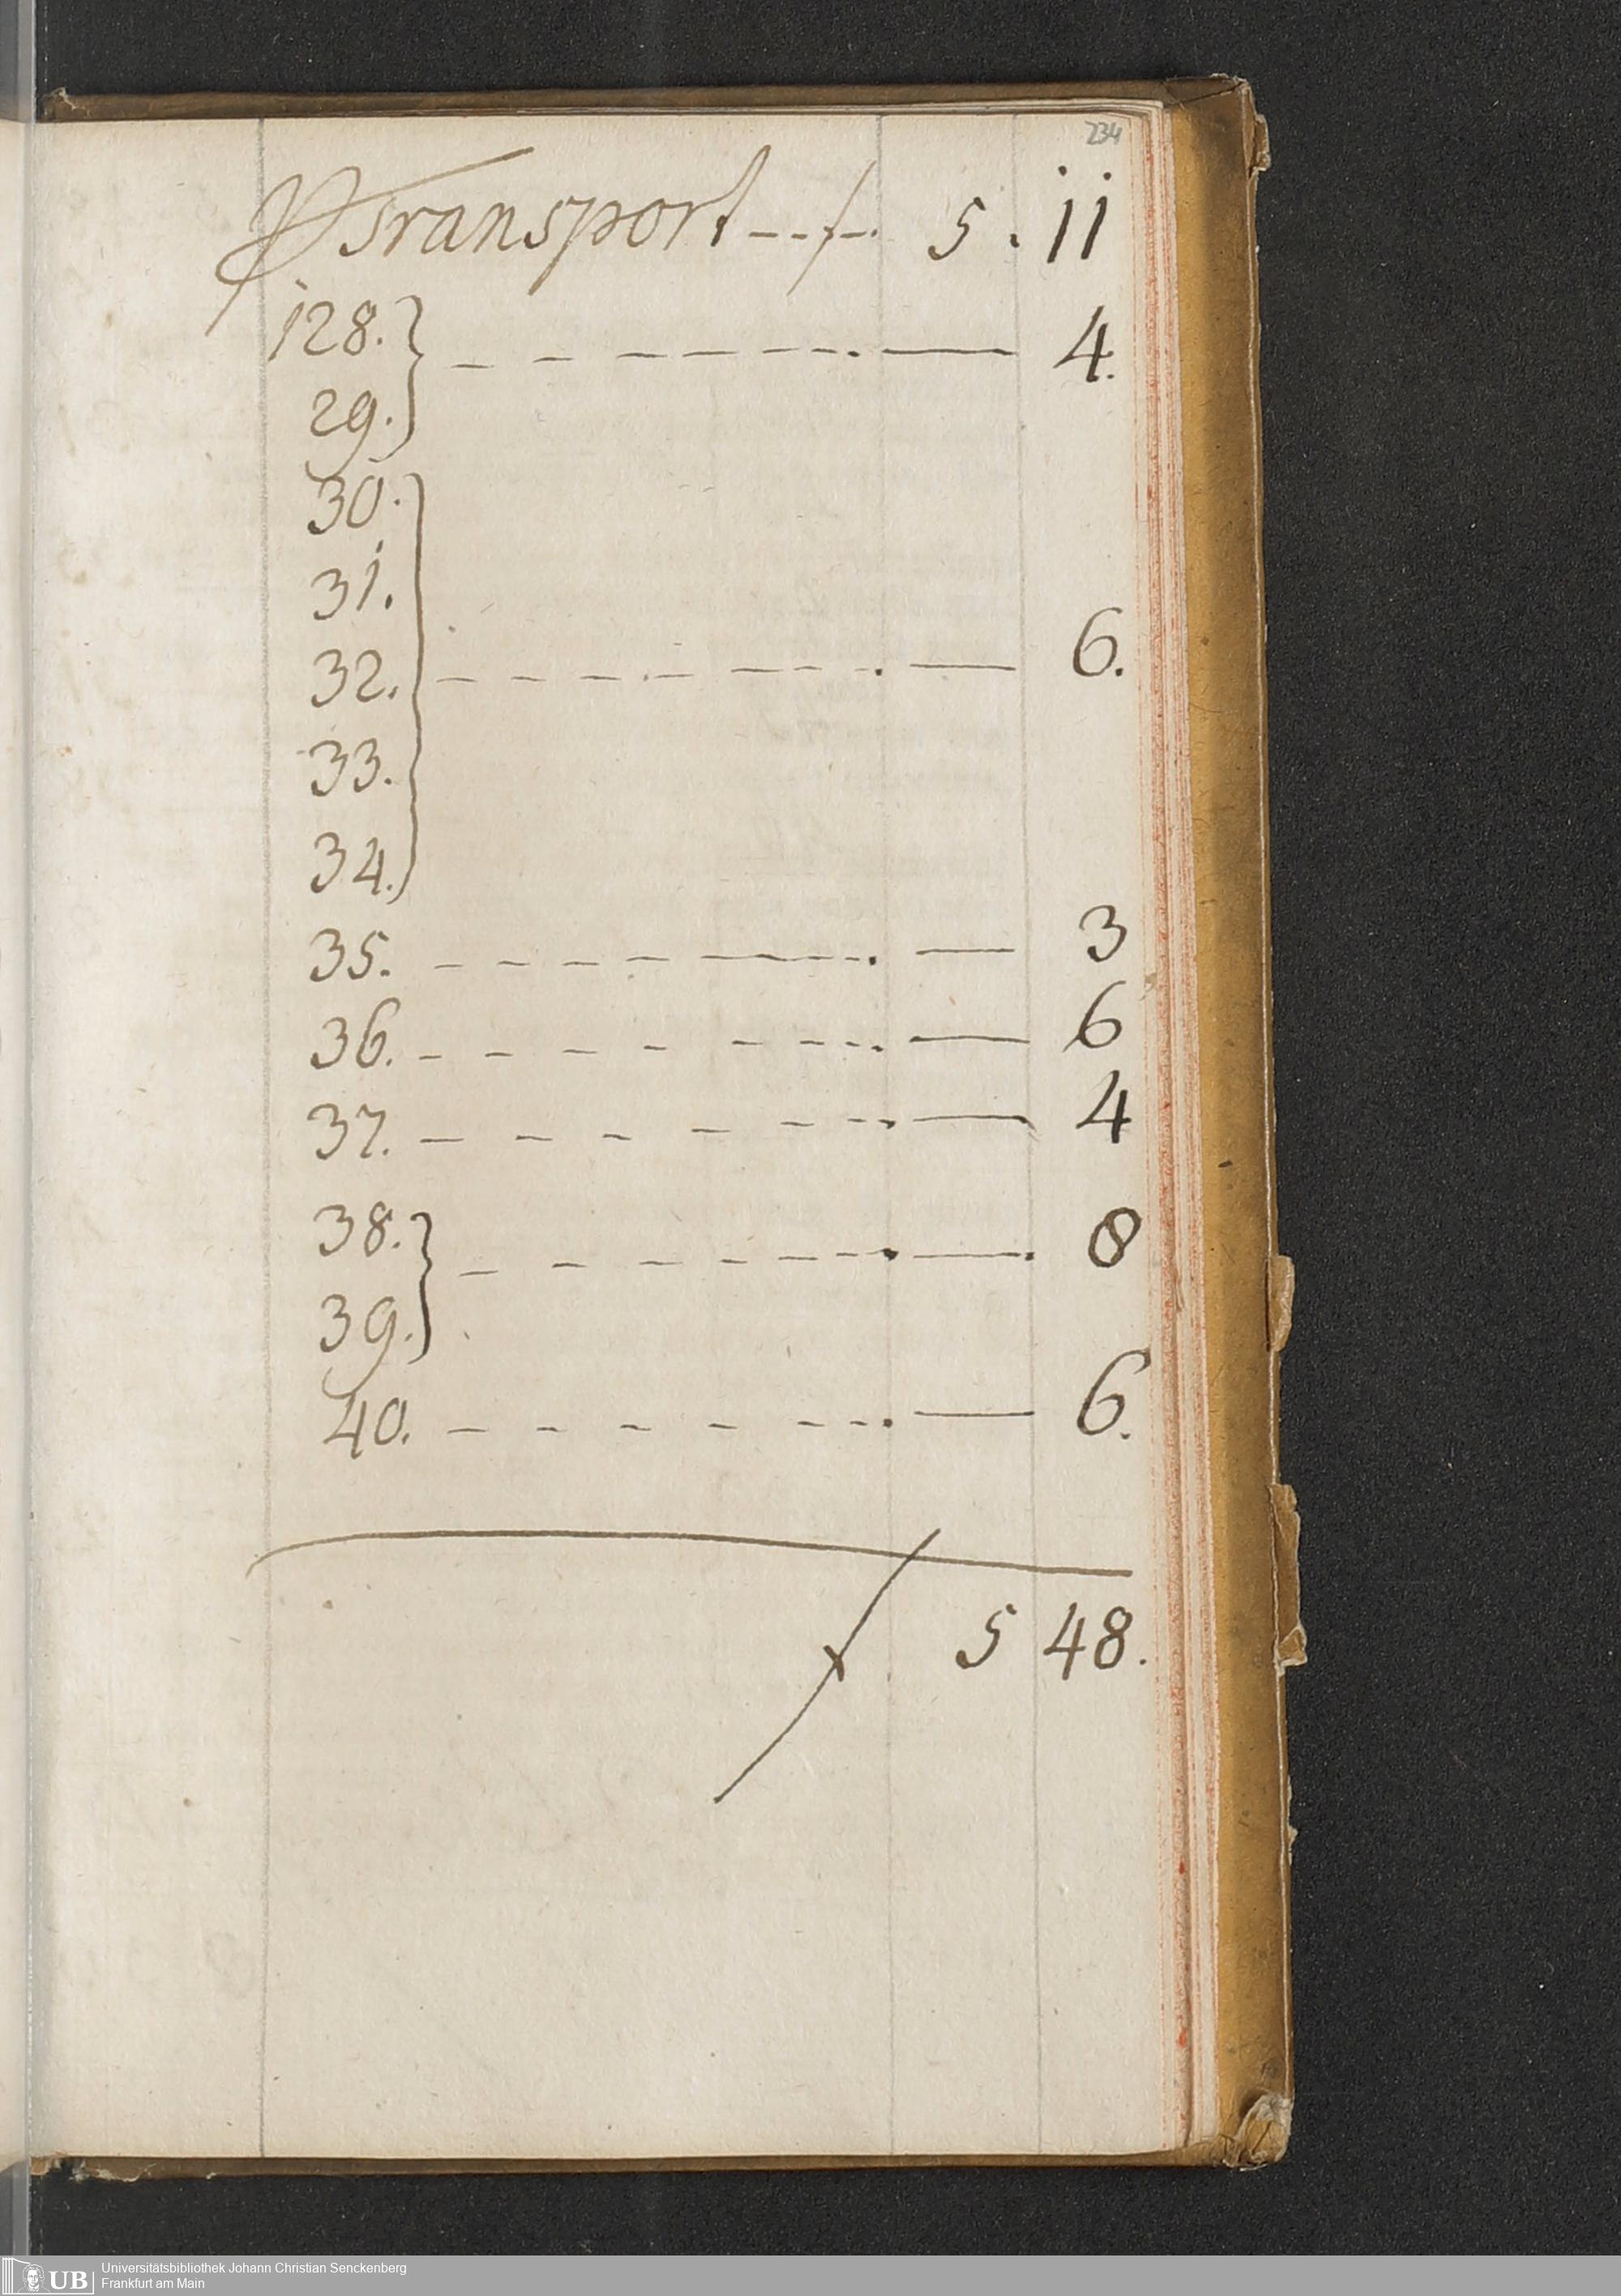 234
P Transport --- f. 5. 11
128. } - - - - - - - . — 4.
29.
30.
31.
32. } - - - - - - - . — 6.
33.
34.
35. - - - - - - - . — 3
36. - - - - - - - . — 6
37. - - - - - - . — 4
38. } - - - - - - . — . 8
39.
40. - - - - - - . — 6.
f 5 48.
UB Universitätsbibliothek Johann Christian Senckenberg
Frankfurt am Main